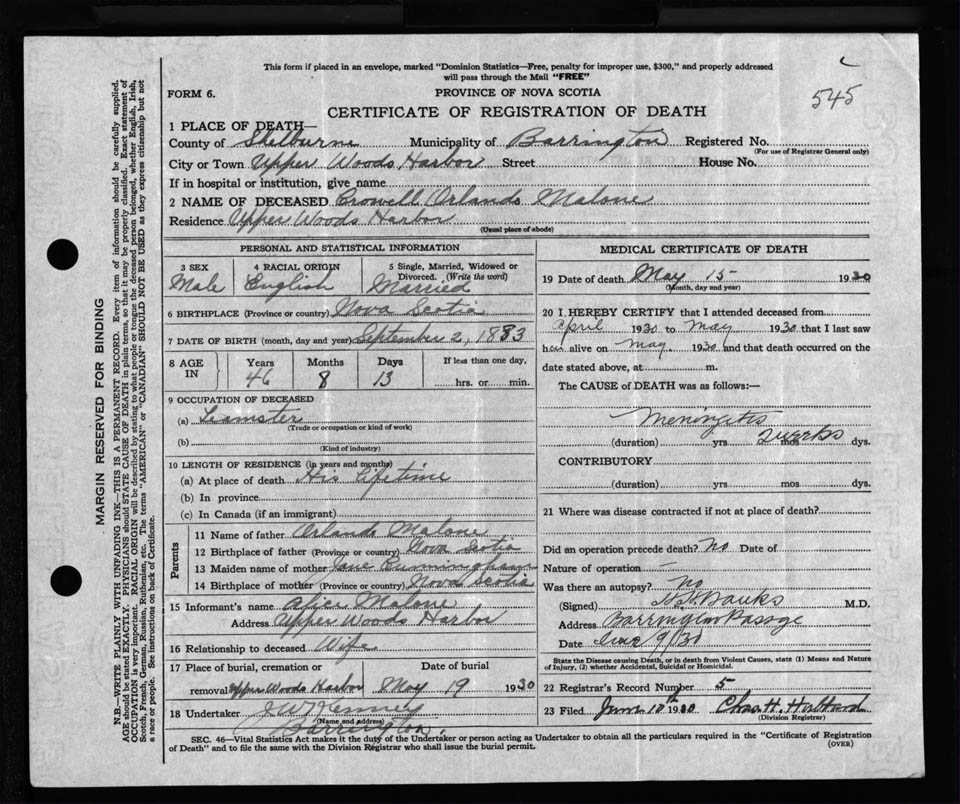 This form if placed in an envelope, marked "Dominion Statistics—Free, penalty for improper use, $300," and properly addressed
will pass through the Mail "FREE"
FORM 6.
PROVINCE OF NOVA SCOTIA
545
CERTIFICATE OF REGISTRATION OF DEATH
1 PLACE OF DEATH—
County of Shelburne Municipality of Barrington Registered No.
(For use of Registrar General only)
City or Town Upper Woods Harbor Street House No.
If in hospital or institution, give name
2 NAME OF DECEASED Crowell Orlando Malone
Residence Upper Woods Harbor
(Usual place of abode)
PERSONAL AND STATISTICAL INFORMATION
3 SEX 4 RACIAL ORIGIN 5 Single, Married, Widowed or
Divorced. (Write the word)
Male English Married
6 BIRTHPLACE (Province or country) Nova Scotia
7 DATE OF BIRTH (month, day and year) September 2, 1883
8 AGE IN Years Months Days If less than one day,
46 8 13 hrs. or min.
9 OCCUPATION OF DECEASED
(a) Teamster
(Trade or occupation or kind of work)
(b)
(Kind of industry)
10 LENGTH OF RESIDENCE (in years and months)
(a) At place of death His Lifetime
(b) In province
(c) In Canada (if an immigrant)
Parents
11 Name of father Orlando Malone
12 Birthplace of father (Province or country) Nova Scotia
13 Maiden name of mother Jane Cunningham
14 Birthplace of mother (Province or country) Nova Scotia
15 Informant's name Malone
Address Upper Woods Harbor
16 Relationship to deceased Wife
17 Place of burial, cremation or Date of burial
removal Upper Woods Harbor May 19 1930
18 Undertaker J W Kenney
(Name and address)
Barrington
MEDICAL CERTIFICATE OF DEATH
19 Date of death May 15 1930
(Month, day and year)
20 I HEREBY CERTIFY that I attended deceased from
April 1930 to May 1930 that I last saw
h alive on May 1930 and that death occurred on the
date stated above, at m.
The CAUSE of DEATH was as follows:—
Meningitis
(duration) yrs mos 2 weeks dys.
CONTRIBUTORY
(duration) yrs mos dys.
21 Where was disease contracted if not at place of death?
Did an operation precede death? No Date of
Nature of operation —
Was there an autopsy? No
(Signed) Banks M.D.
Address Barrington Passge
Date June 9/30
State the Disease causing Death, or in death from Violent Causes, state (1) Means and Nature
of Injury, (2) whether Accidental, Suicidal or Homicidal.
22 Registrar's Record Number 5
23 Filed June 10th 1930 Chas. H.
(Division Registrar)
SEC. 46—Vital Statistics Act makes it the duty of the Undertaker or person acting as Undertaker to obtain all the particulars required in the "Certificate of Registration
of Death" and to file the same with the Division Registrar who shall issue the burial permit.
(OVER)
MARGIN RESERVED FOR BINDING
N.B.—WRITE PLAINLY WITH UNFADING INK—THIS IS A PERMANENT RECORD. Every item of information should be carefully supplied.
AGE should be stated EXACTLY. PHYSICIANS should STATE CAUSE OF DEATH in plain terms, so that it may be properly classified. Exact statement of
OCCUPATION is very important. RACIAL ORIGIN will be described by stating to what people or tongue the deceased person belonged, whether English, Irish,
Scotch, French, German, Russian, Ruthenian, etc. The terms "AMERICAN" or "CANADIAN" SHOULD NOT BE USED as they express citizenship but not
a race or people. See instructions on back of Certificate.